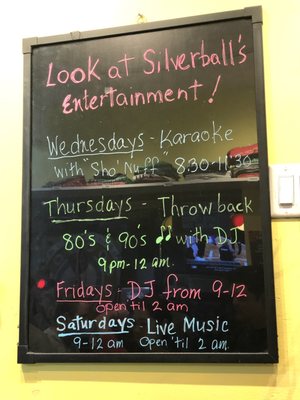 Look at Silverball's
Entertainment!
Wednesdays - Karaoke
with "Sho' Nuff" 8:30-11:30
Thursdays - Throw back
80's & 90's with DJ
9pm-12 am.
Fridays - DJ from 9-12
open til 2 am
Saturdays - Live Music
9-12 am Open 'til 2 am.